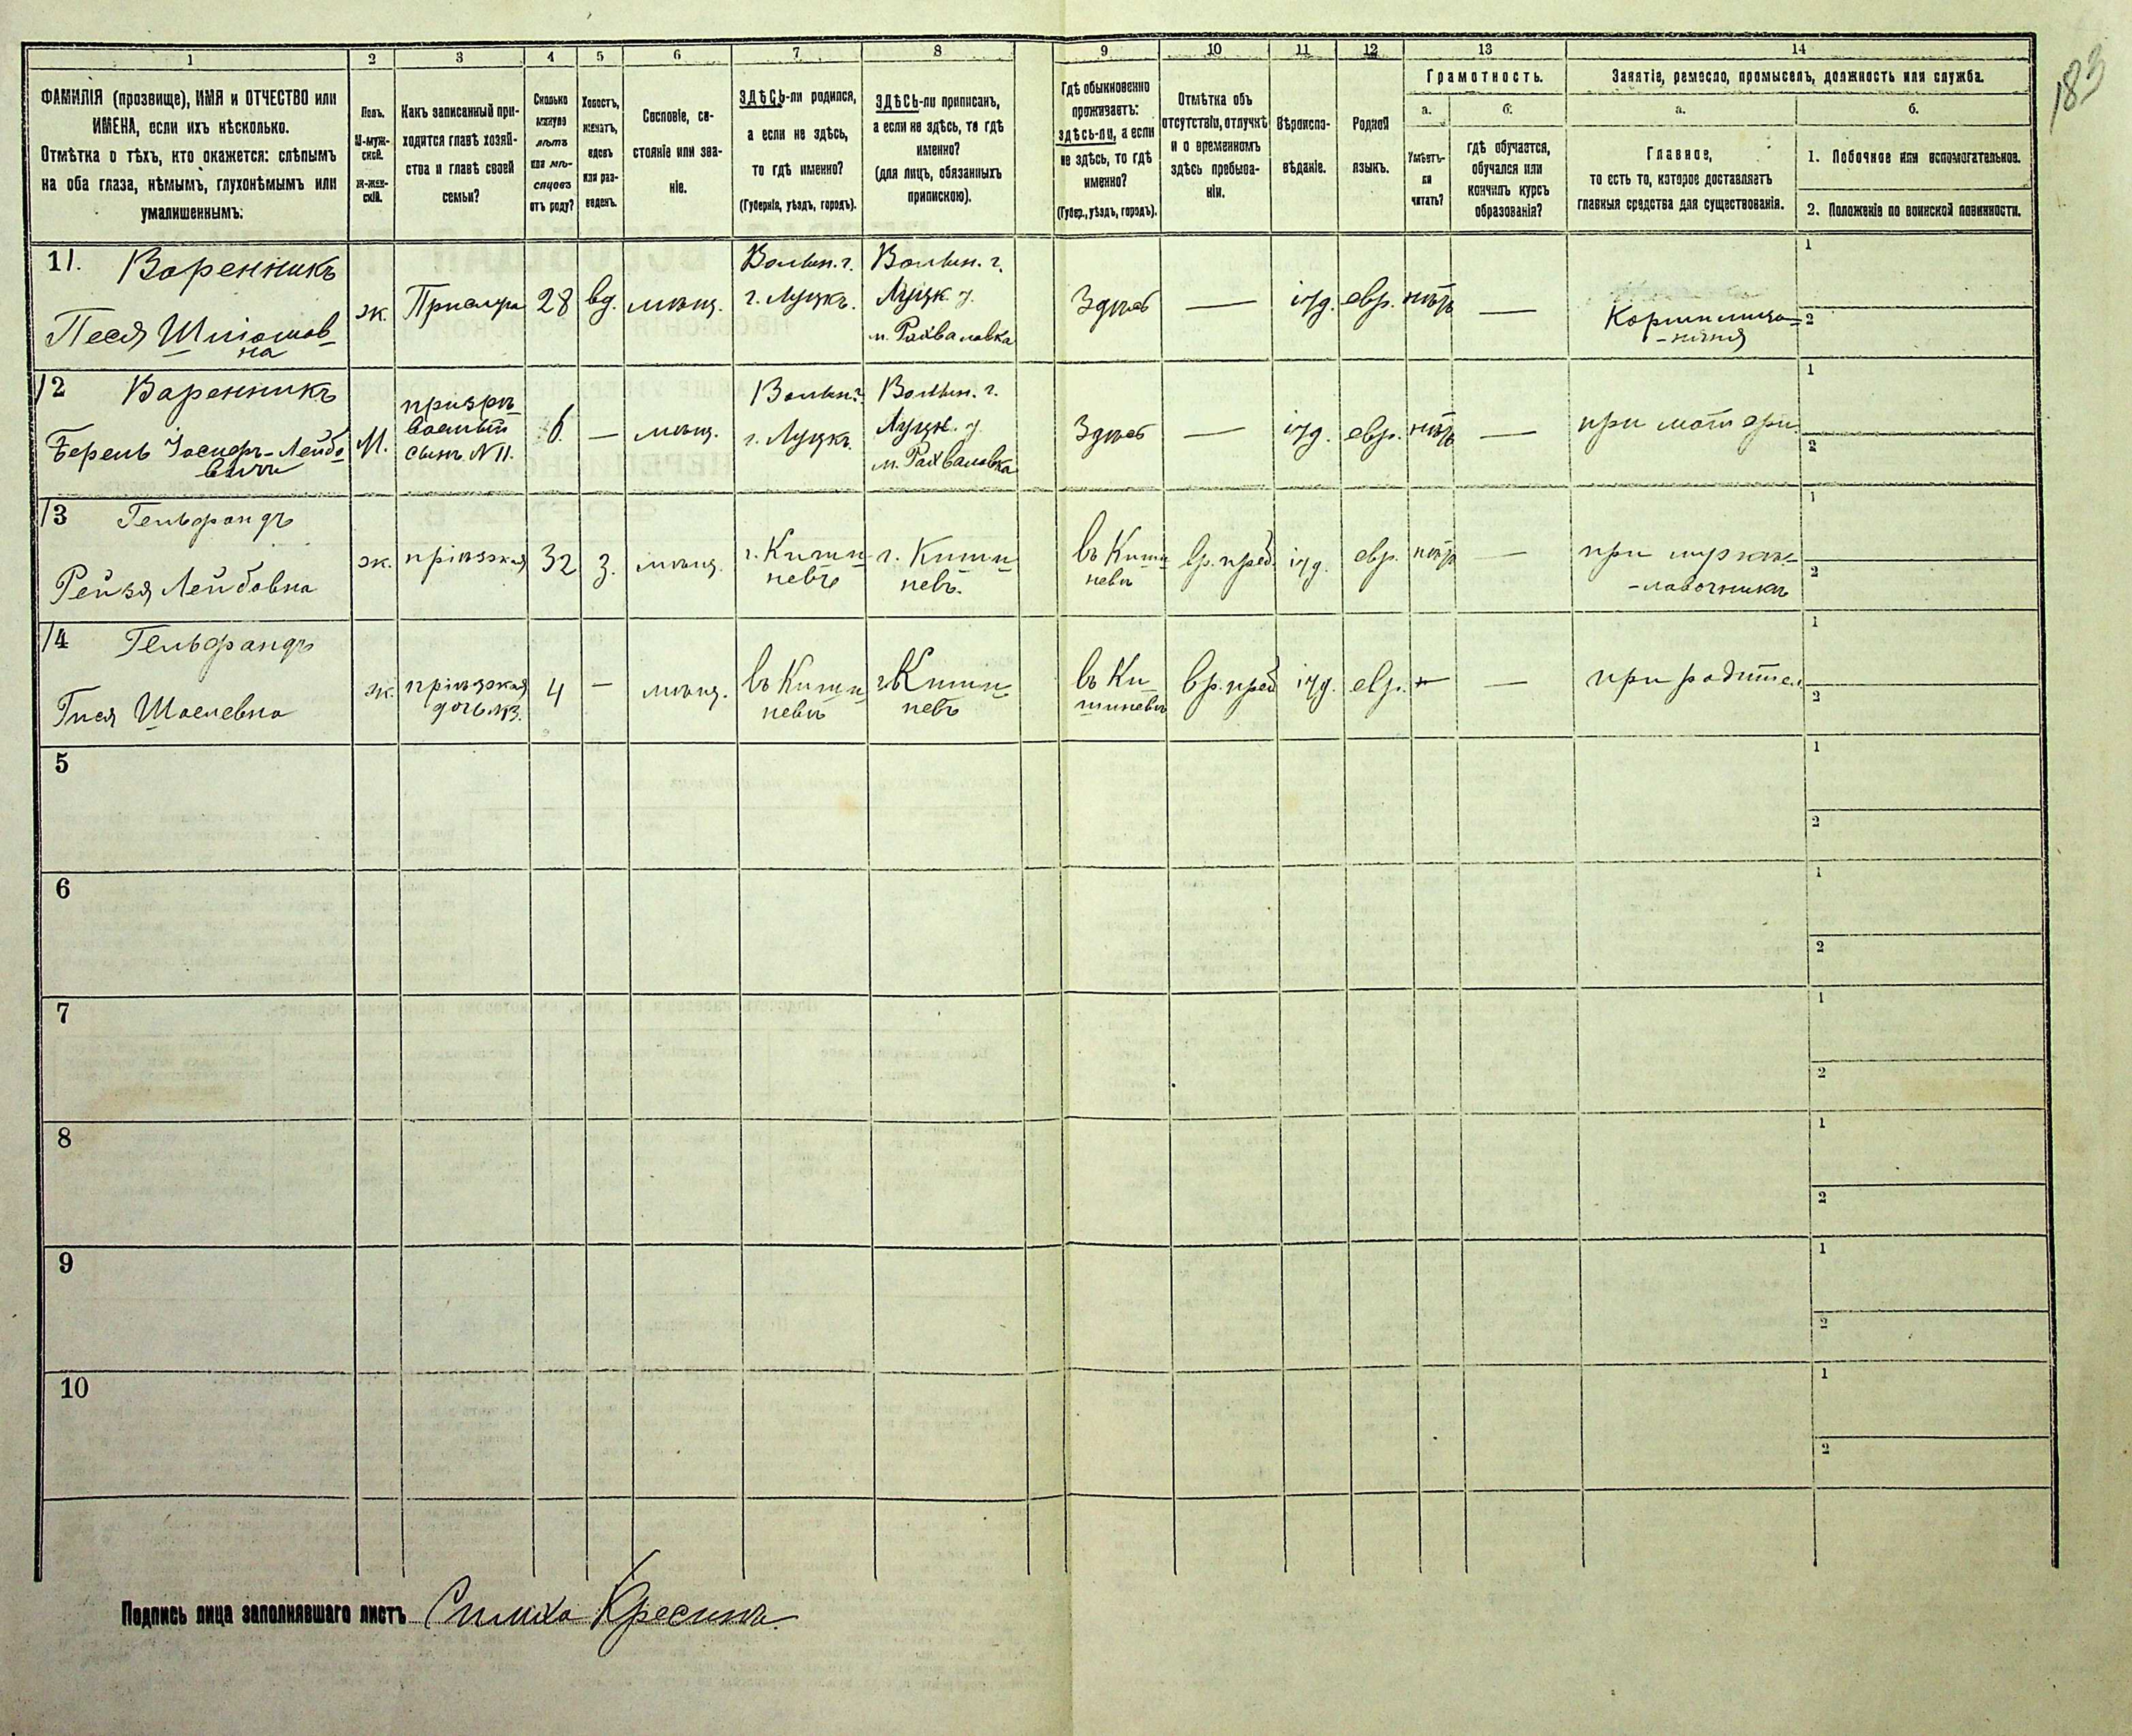 183
1 2 3 4 5 6 7 8 9 10 11 12 13 14
ФАМИЛІЯ (прозвище), ИМЯ и ОТЧЕСТВО или
ИМЕНА, если ихъ нѣсколько.
Отмѣтка о тѣхъ, кто окажется: слѣпымъ
на оба глаза, нѣмымъ, глухонѣмымъ или
умалишеннымъ.
Полъ.
М-муж-
ской.
Ж-жен-
скій.
Какъ записанный при-
ходится главѣ хозяй-
ства и главѣ своей
семьи?
Сколько
минуло
лѣтъ
или мѣ-
сяцевъ
отъ роду?
Холостъ,
женатъ,
вдовъ
или раз-
веденъ.
Сословіе, со-
стояніе или зва-
ніе.
ЗДѢСЬ-ли родился,
а если не здѣсь,
то гдѣ именно?
(Губернія, уѣздъ, городъ).
ЗДѢСЬ-ли приписанъ,
а если не здѣсь, то гдѣ
именно?
(для лицъ, обязанныхъ
припискою).
Гдѣ обыкновенно
проживаетъ:
здѣсь-ли, а если
не здѣсь, то гдѣ
именно?
(Губер., уѣздъ, городъ).
Отмѣтка объ
отсутствіи, отлучкѣ
и о временномъ
здѣсь пребыва-
ніи.
Вѣроиспо-
вѣданіе.
Родной
языкъ.
Грамотность.
а.
Умѣетъ-
ли
читать?
б.
гдѣ обучается,
обучался или
кончилъ курсъ
образованія?
Занятіе, ремесло, промыселъ, должность или служба.
а.
Главное,
то есть то, которое доставляетъ
главныя средства для существованія.
б.
1. Побочное или вспомогательное.
2. Положеніе по воинской повинности.
11. Вареникъ
Песя Шліомов-
на
ж.
Прислуга
28
вд.
мѣщ.
Волын. г.
г. Луцкъ.
Волын. г.
Луцк. у.
м. Рахваловка
Здѣсь
—
іуд.
евр.
нѣтъ
—
Кормилица-
-няня
1
2
12 Вареникъ
Берель Іосифъ-Лейбо-
вичъ
М.
сынъ N 11.
6.
—
мѣщ.
Волын. г.
г. Луцкъ
Волын. г.
Луцк. у
м. Рахваловка
Здѣсь
—
іуд.
евр.
нѣтъ
—
при матери
1
2
13 Гельфандъ
Рейзя Лейбовна
ж.
пріѣзжая
32
з.
мѣщ.
г. Киши-
невъ
г. Киши-
невъ.
въ Киши-
невѣ
вр. преб.
іуд.
евр.
нѣтъ
—
при мужѣ-
-лавочникѣ
1
2
14 Гельфандъ
Гися Шоелевна
ж.
пріѣзжая
дочь 13.
4
—
мѣщ.
въ Киши-
невѣ
г. Киши-
невъ
въ Ки-
шиневѣ
вр. преб
іуд.
евр.
—
—
при родител.
1
2
5
1
2
6
1
2
7
1
2
8
1
2
9
1
2
10
1
2
Подпись лица заполнявшаго листъ Симха Кресинъ.